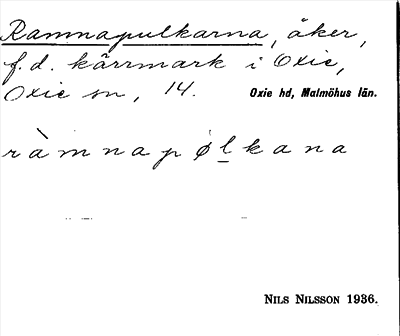 Ramnapulkarna, åker,
f.d. kärrmark i Oxie,
Oxie sn, 14. Oxie hd, Malmöhus län.
ràmnapølkana
NILS NILSSON 1936.